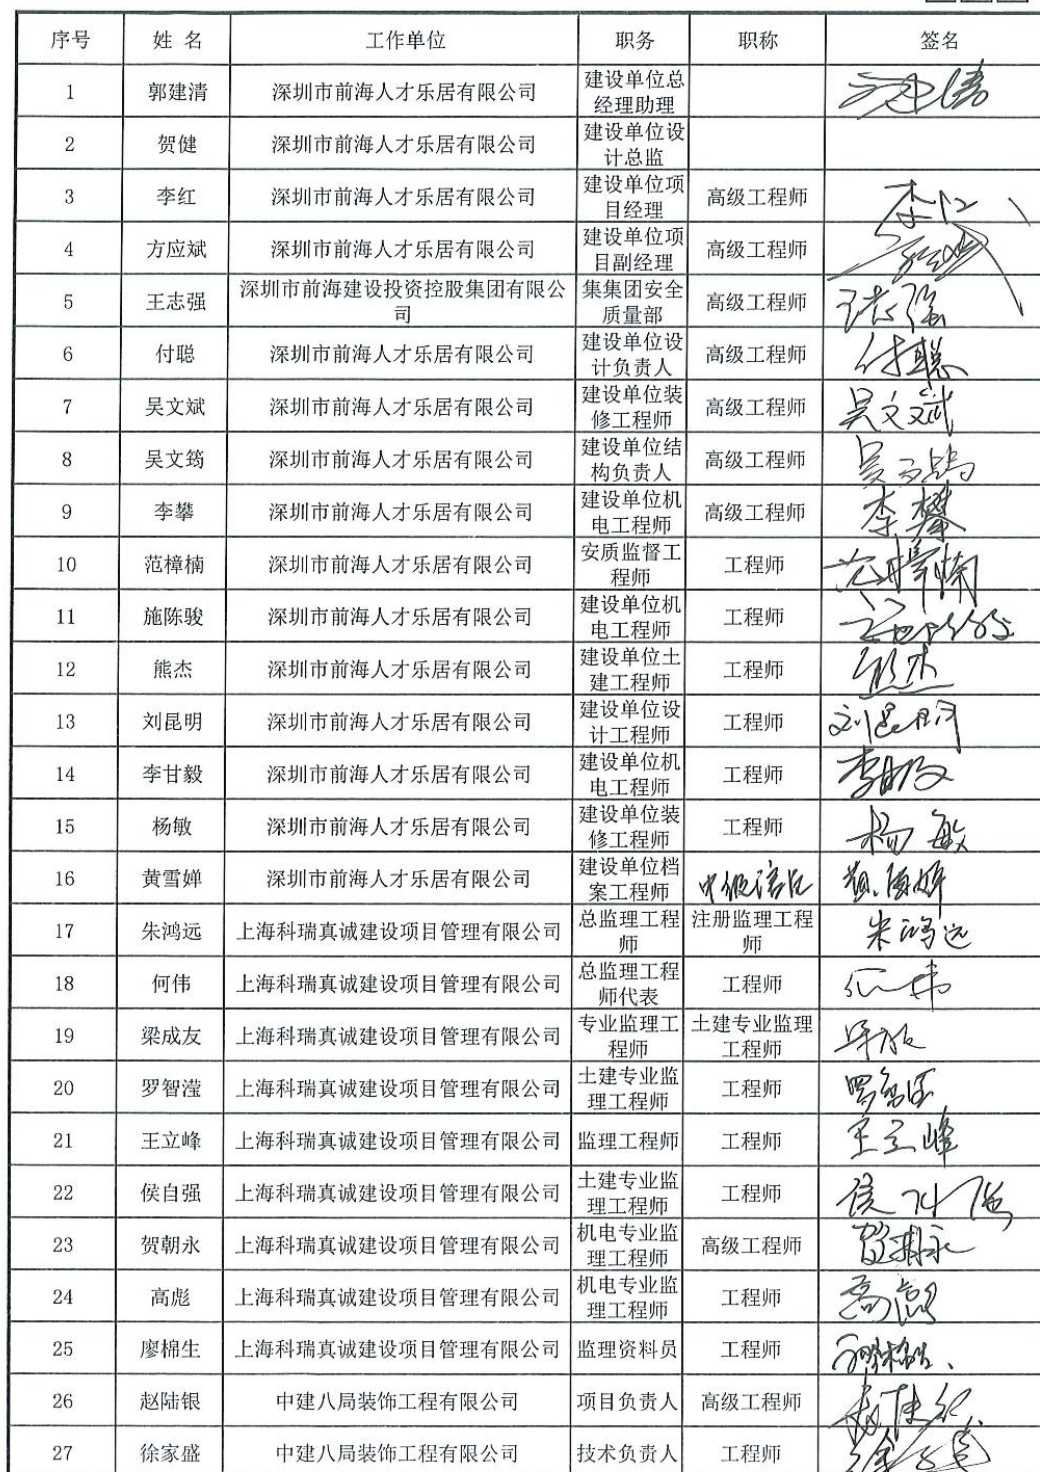 序号 姓 名 工作单位 职务 职称 签名
1 郭建清 深圳市前海人才乐居有限公司 建设单位总经理助理
2 贺健 深圳市前海人才乐居有限公司 建设单位设计总监
3 李红 深圳市前海人才乐居有限公司 建设单位项目经理 高级工程师 李红
4 方应斌 深圳市前海人才乐居有限公司 建设单位项目副经理 高级工程师
5 王志强 深圳市前海建设投资控股集团有限公司 集集团安全质量部 高级工程师 王志强
6 付聪 深圳市前海人才乐居有限公司 建设单位设计负责人 高级工程师 付聪
7 吴文斌 深圳市前海人才乐居有限公司 建设单位装修工程师 高级工程师 吴文斌
8 吴文筠 深圳市前海人才乐居有限公司 建设单位结构负责人 高级工程师 吴文筠
9 李攀 深圳市前海人才乐居有限公司 建设单位机电工程师 高级工程师 李攀
10 范樟楠 深圳市前海人才乐居有限公司 安质监督工程师 工程师 范樟楠
11 施陈骏 深圳市前海人才乐居有限公司 建设单位机电工程师 工程师
12 熊杰 深圳市前海人才乐居有限公司 建设单位土建工程师 工程师 熊杰
13 刘昆明 深圳市前海人才乐居有限公司 建设单位设计工程师 工程师 刘昆明
14 李甘毅 深圳市前海人才乐居有限公司 建设单位机电工程师 工程师 李甘毅
15 杨敏 深圳市前海人才乐居有限公司 建设单位装修工程师 工程师 杨敏
16 黄雪婵 深圳市前海人才乐居有限公司 建设单位档案工程师 黄雪婵
17 朱鸿远 上海科瑞真诚建设项目管理有限公司 总监理工程师 注册监理工程师 朱鸿远
18 何伟 上海科瑞真诚建设项目管理有限公司 总监理工程师代表 工程师 何伟
19 梁成友 上海科瑞真诚建设项目管理有限公司 专业监理工程师 土建专业监理工程师
20 罗智滢 上海科瑞真诚建设项目管理有限公司 土建专业监理工程师 工程师 罗智滢
21 王立峰 上海科瑞真诚建设项目管理有限公司 监理工程师 工程师 王立峰
22 侯自强 上海科瑞真诚建设项目管理有限公司 土建专业监理工程师 工程师 侯自强
23 贺朝永 上海科瑞真诚建设项目管理有限公司 机电专业监理工程师 高级工程师 贺朝永
24 高彪 上海科瑞真诚建设项目管理有限公司 机电专业监理工程师 工程师 高彪
25 廖棉生 上海科瑞真诚建设项目管理有限公司 监理资料员 工程师 廖棉生
26 赵陆银 中建八局装饰工程有限公司 项目负责人 高级工程师 赵陆银
27 徐家盛 中建八局装饰工程有限公司 技术负责人 工程师 徐家盛